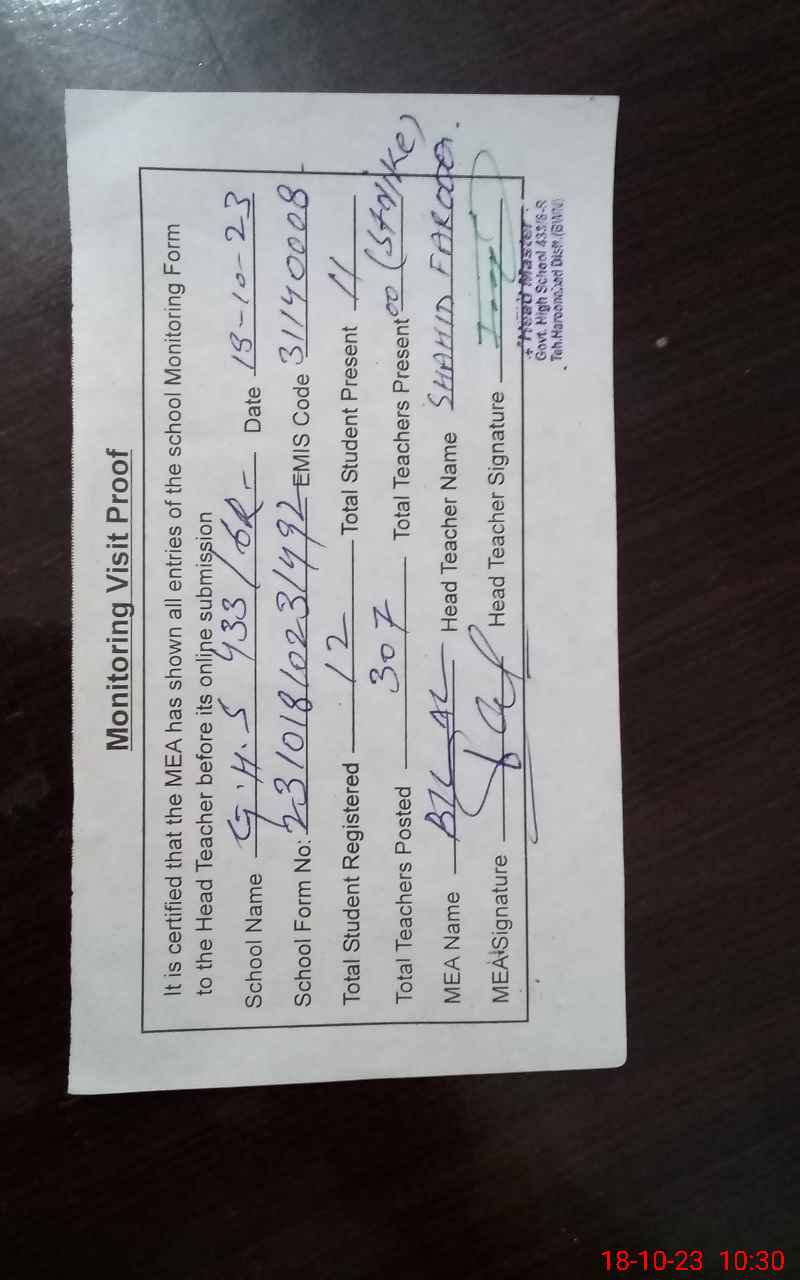 Monitoring Visit Proof
It is certified that the MEA has shown all entries of the school Monitoring Form
to the Head Teacher before its online submission
School Name G.H.S 433/6R- Date 18-10-23
School Form No: 23101810231492 EMIS Code 31140008
Total Student Registered 12 Total Student Present 11
Total Teachers Posted 307 Total Teachers Present 00 (Strike)
MEA Name BILAL Head Teacher Name SHAHID FAROOQ.
MEA Signature Head Teacher Signature
Head Master
Govt. High School 433/6-R
Teh.Haroonabad Distt.(BWN)
18-10-23 10:30